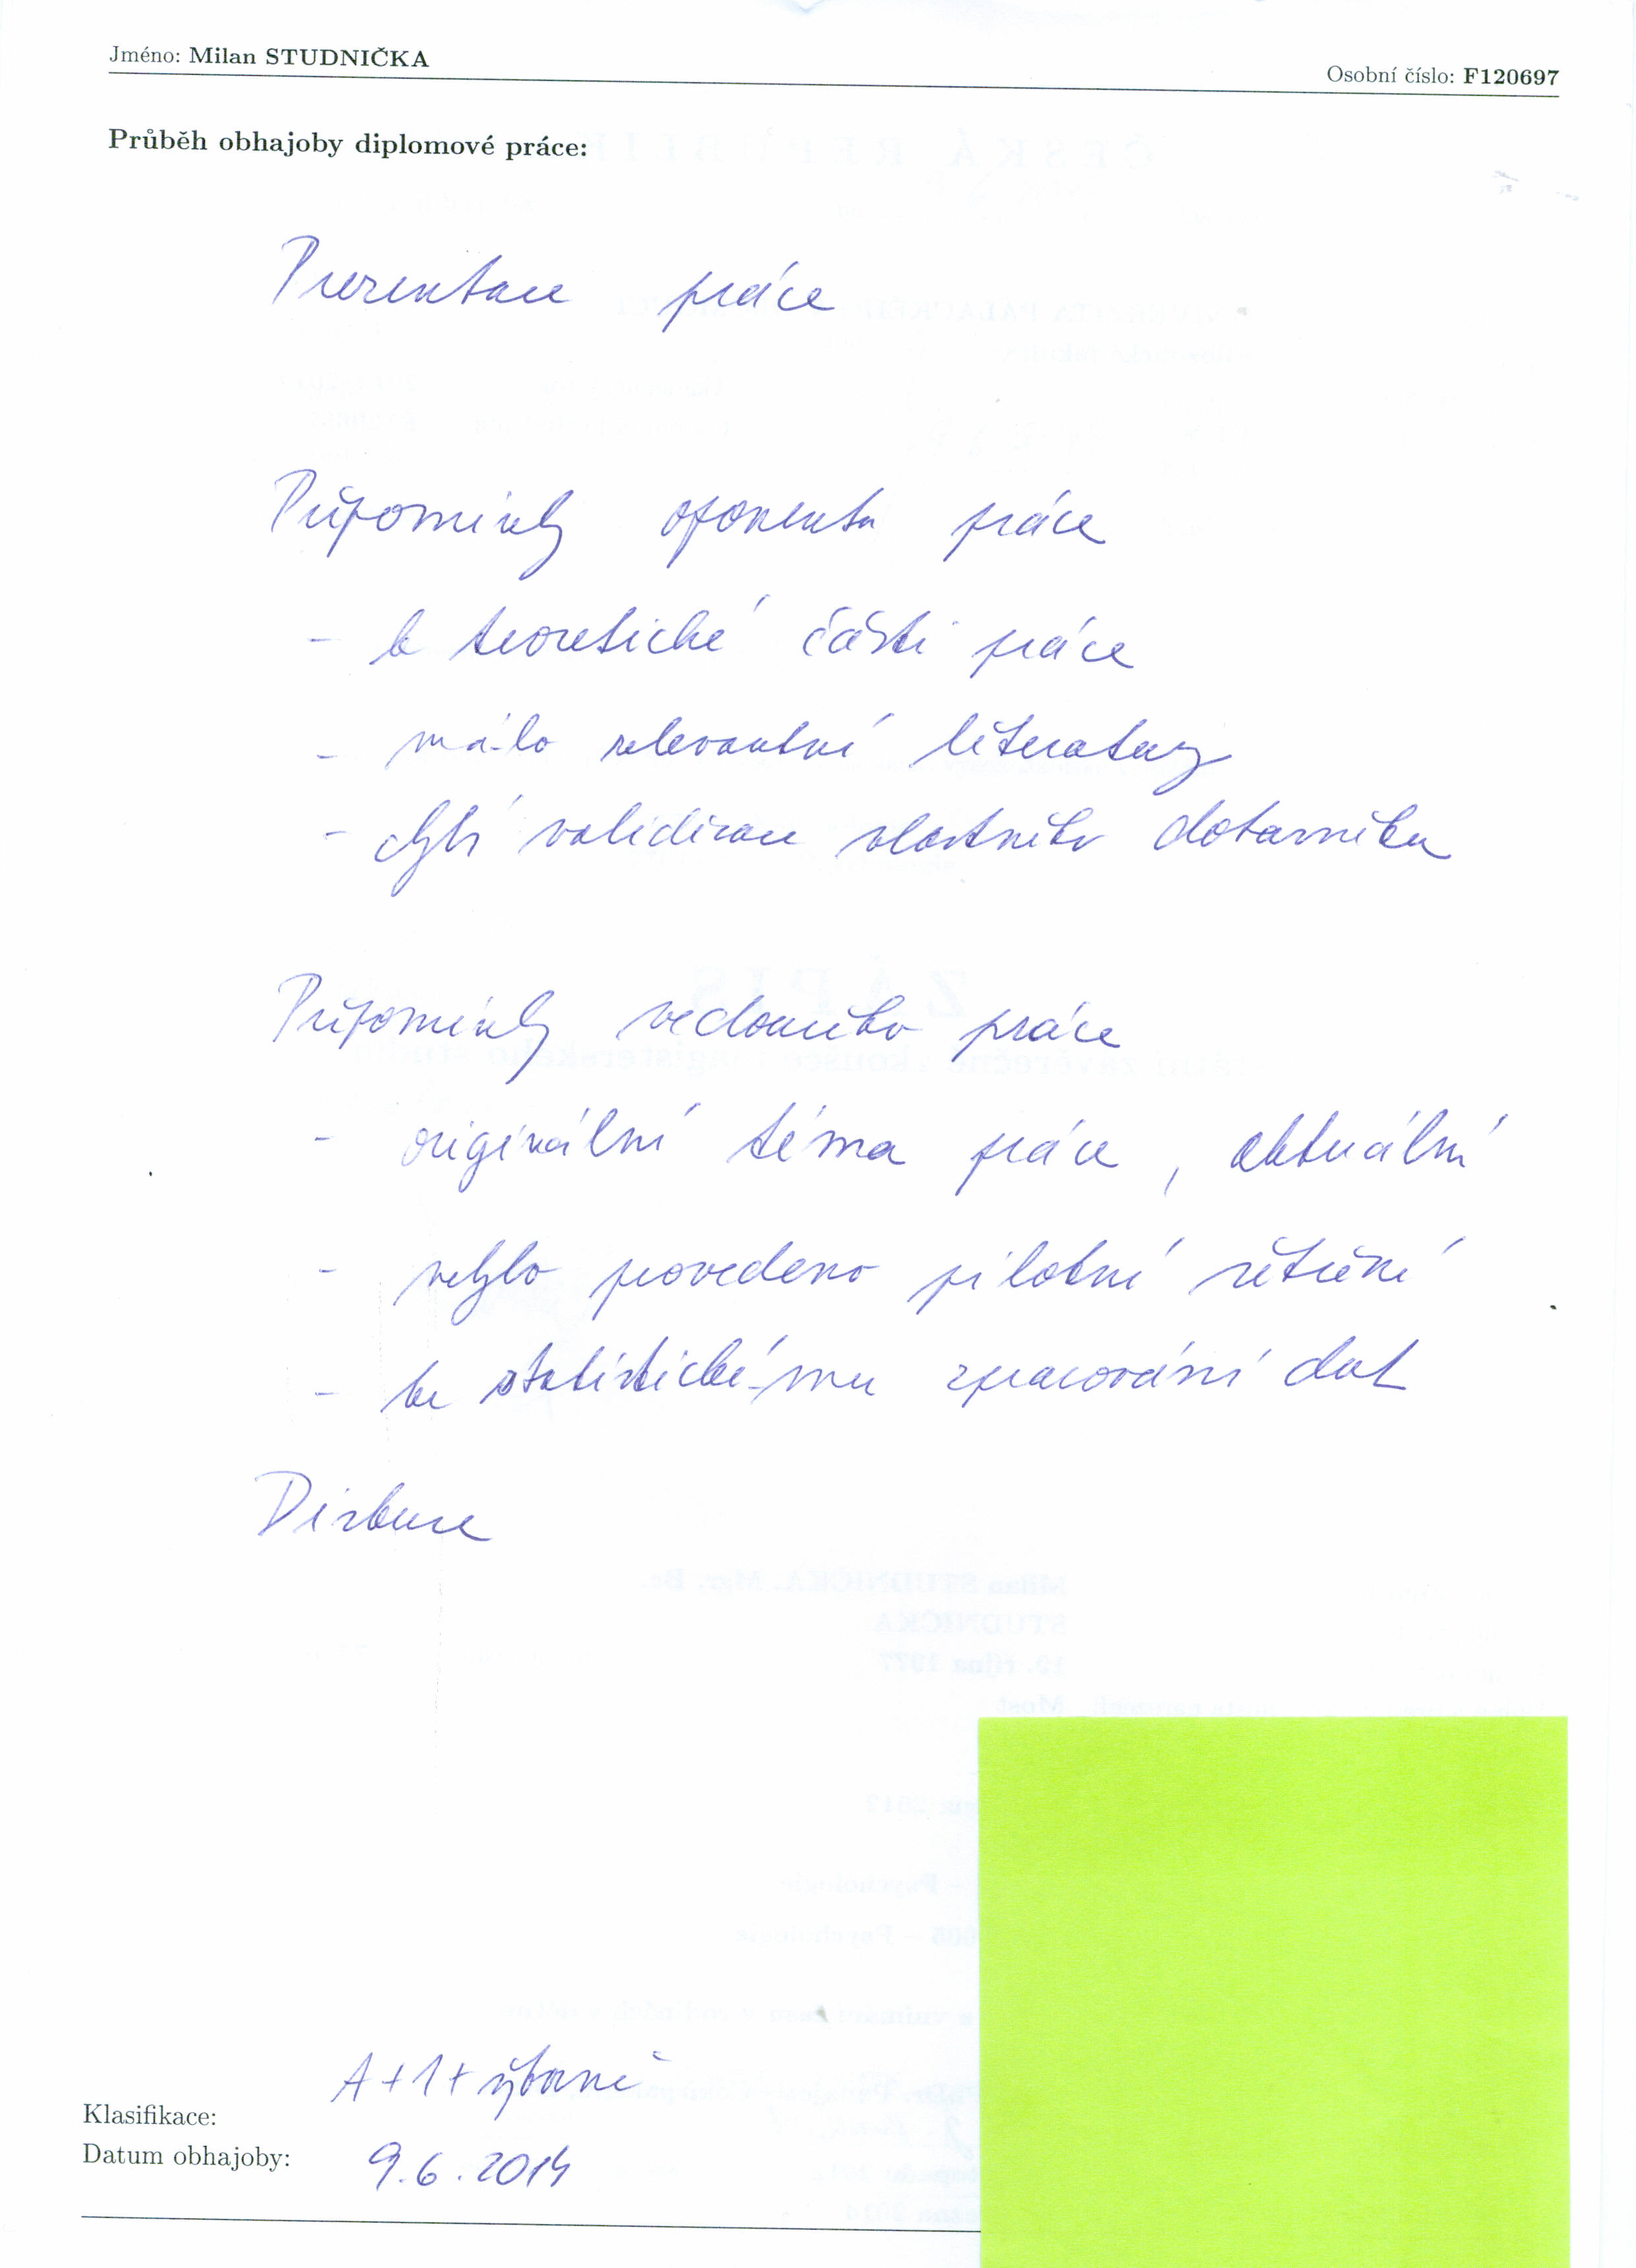 Jméno: Milan STUDNIČKA
Osobní číslo: F120697
Průběh obhajoby diplomové práce:
Prezentace práce
Připomínky oponenta práce
- k teoretické části práce
- málo relevantní literatury
- chybí validizace vlastního dotazníku
Připomínky vedoucího práce
- originální téma práce, aktuální
- nebylo provedeno pilotní šetření
- ke statistickému zpracování dat
Diskuse
A+1+výborně
Klasifikace:
Datum obhajoby: 9.6.2014